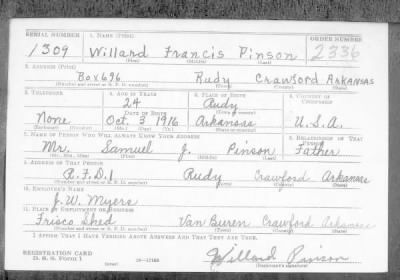 SERIAL NUMBER 1. NAME (Print) ORDER NUMBER
1309 Willard Francis Pinson 2336
(First) (Middle) (Last)
2. ADDRESS (Print)
Box 696 Rudy Crawford Arkansas
(Number and street or R. F. D. number) (Town) (County) (State)
3. TELEPHONE 4. AGE IN YEARS 5. PLACE OF BIRTH 6. COUNTRY OF CITIZENSHIP
24 Rudy
DATE OF BIRTH (Town or county)
None Oct. 3 1916 Arkansas U.S.A.
(Exchange) (Number) (Mo.) (Day) (Yr.) (State or country)
7. NAME OF PERSON WHO WILL ALWAYS KNOW YOUR ADDRESS 8. RELATIONSHIP OF THAT PERSON
Mr. Samuel J. Pinson Father
(Mr., Mrs., Miss) (First) (Middle) (Last)
9. ADDRESS OF THAT PERSON
R.F.D.1 Rudy Crawford Arkansas
(Number and street or R. F. D. number) (Town) (County) (State)
10. EMPLOYER'S NAME
J.W. Myers
11. PLACE OF EMPLOYMENT OR BUSINESS
Frisco Shed Van Buren Crawford Arkansas
(Number and street or R. F. D. number) (Town) (County) (State)
I AFFIRM THAT I HAVE VERIFIED ABOVE ANSWERS AND THAT THEY ARE TRUE.
REGISTRATION CARD
D. S. S. FORM 1 16—17105 Willard Pinson
(Registrant's signature)